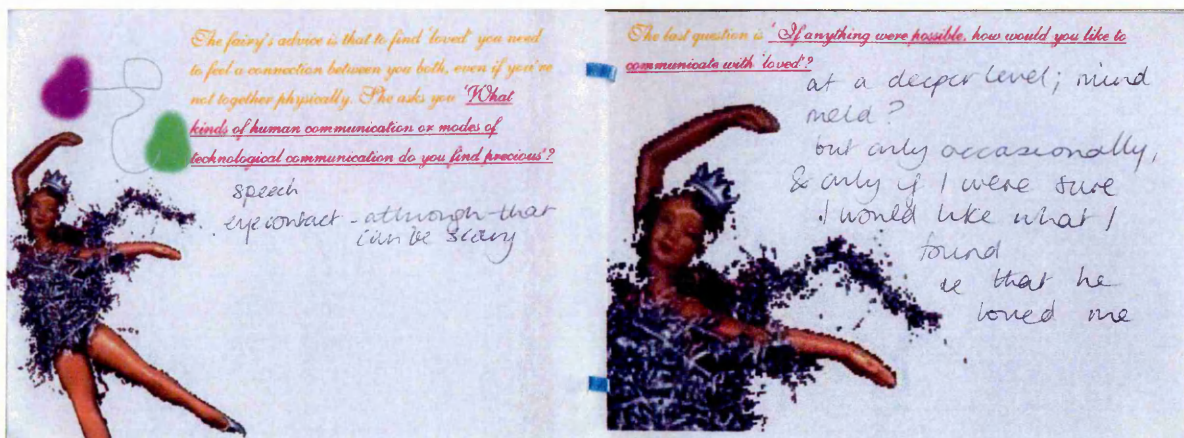 The fairy's advice is that to find 'loved' you need
to feel a connection between you both, even if you're
not together physically. She asks you 'What
kinds of human communication or modes of
technological communication do you find precious'?
speech
eye contact - although that
can be scary
The last question is 'If anything were possible, how would you like to
communicate with 'loved'?
at a deeper level; mind
meld?
but only occasionally,
& only if I were sure
I would like what I
found
ie that he
loved me